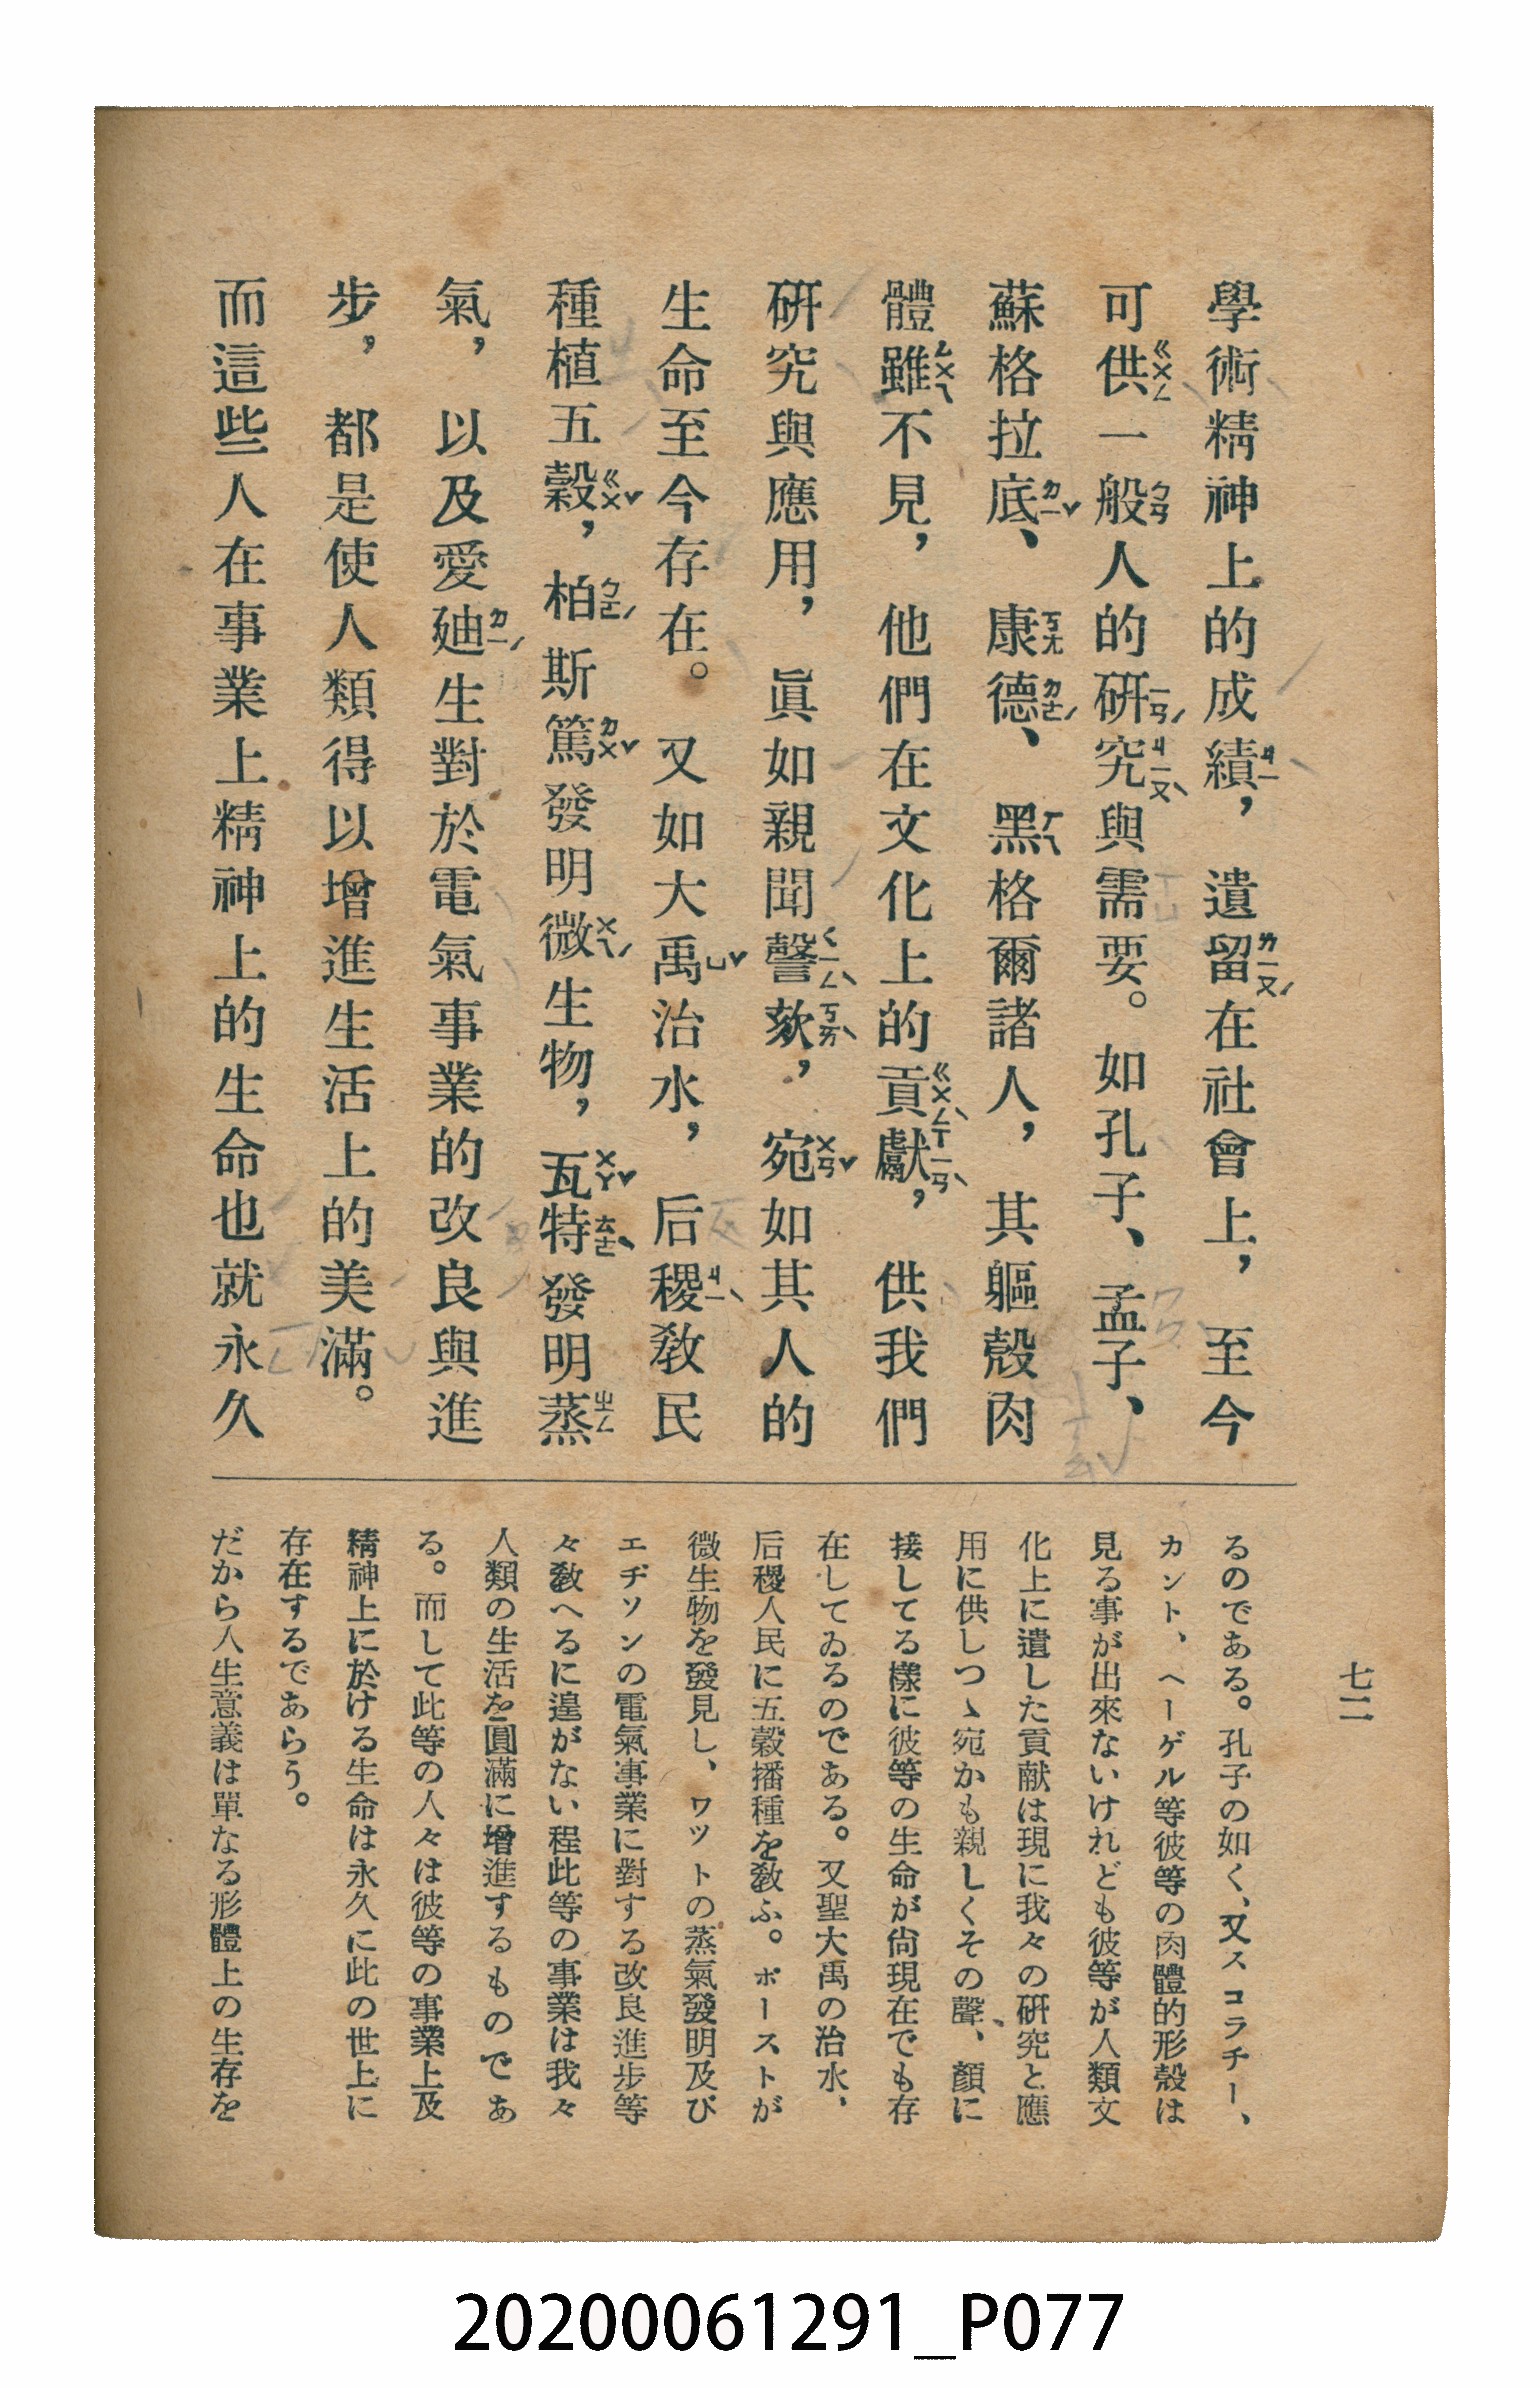 學術精神上的成績，遺留在社會上，至今
可供一般人的研究與需要。如孔子、孟子、
蘇格拉底、康德、黑格爾諸人，其軀殼肉
體雖不見，他們在文化上的貢獻，供我們
研究與應用，眞如親聞謦欬，宛如其人的
生命至今存在。又如大禹治水，后稷敎民
種植五穀，柏斯篤發明微生物，瓦特發明蒸
氣，以及愛廸生對於電氣事業的改良與進
步，都是使人類得以增進生活上的美滿。
而這些人在事業上精神上的生命也就永久
七二
るのである。孔子の如く、又スコラチー、
カント、ヘーゲル等彼等の肉體的形殼は
見る事が出來ないけれども彼等が人類文
化上に遺した貢献は現に我々の研究と應
用に供しつゝ宛かも親しくその聲、顏に
接してる樣に彼等の生命が尙現在でも存
在してゐるのである。又聖大禹の治水、
后稷人民に五穀播種を敎ふ。ポーストが
微生物を發見し、ワツトの蒸氣發明及び
エヂソンの電氣事業に對する改良進步等
々敎へるに遑がない程此等の事業は我々
人類の生活を圓滿に增進するものであ
る。而して此等の人々は彼等の事業上及
精神上に於ける生命は永久に此の世上に
存在するであらう。
だから人生意義は單なる形體上の生存を
20200061291_P077